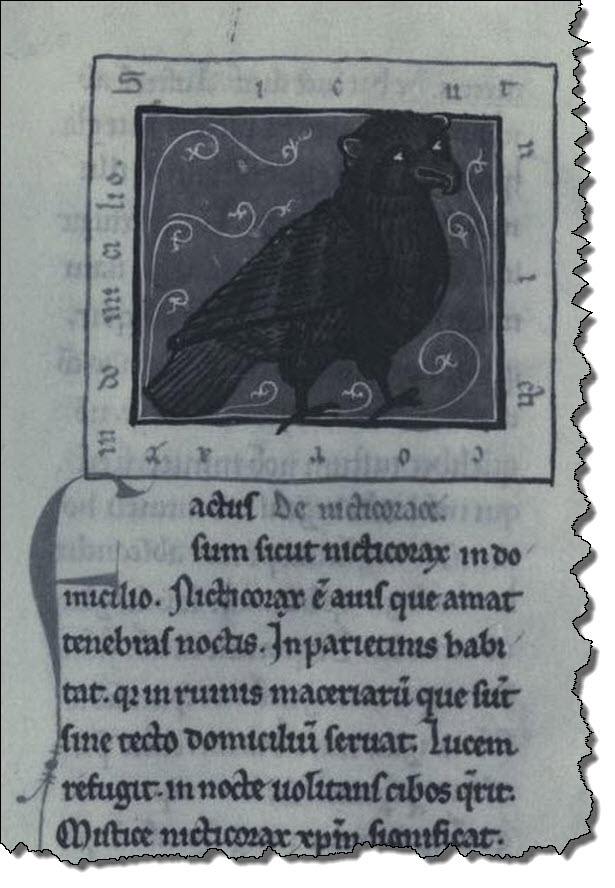 Sicut
nicti
corax
in domicilio.
Factus De nicticorace.
sum sicut nicticorax in do
micilio. Nicticorax ē auis que amat
tenebras noctis. In parietinis habi
tat. qr in ruinis maceriarū que sūt
sine tecto domiciliū seruat. Lucem
refugit. in nocte uolitans cibos q̄rit.
Mistice nicticorax xp̄m significat.